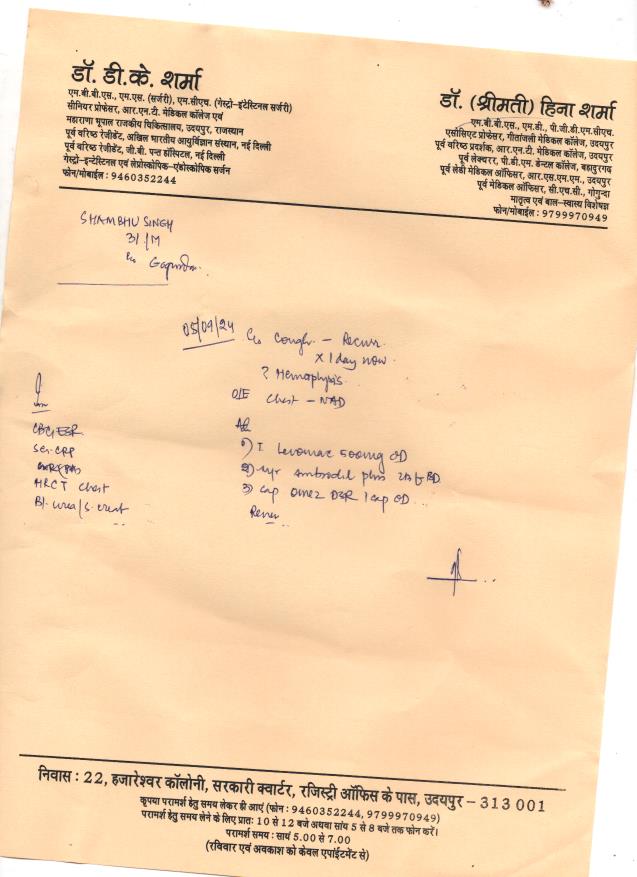 डॉ. डी.के. शर्मा
एम.बी.बी.एस., एम.एस. (सर्जरी), एम.सीएच. (गेस्ट्रो-इंटेस्टिनल सर्जरी)
सीनियर प्रोफेसर, आर.एन.टी. मेडिकल कॉलेज एवं
महाराणा भूपाल राजकीय चिकित्सालय, उदयपुर, राजस्थान
पूर्व वरिष्ठ रेजीडेंट, अखिल भारतीय आयुर्विज्ञान संस्थान, नई दिल्ली
पूर्व वरिष्ठ रेजीडेंट, जी.बी. पन्त हॉस्पिटल, नई दिल्ली
गेस्ट्रो-इन्टेस्टिनल एवं लेप्रोस्कोपिक-एंडोस्कोपिक सर्जन
फोन/मोबाईल : 9460352244
डॉ. (श्रीमती) हिना शर्मा
एम.बी.बी.एस., एम.डी., पी.जी.डी.एम.सीएच.
एसोसिएट प्रोफेसर, गीतांजली मेडिकल कॉलेज, उदयपुर
पूर्व वरिष्ठ प्रदर्शक, आर.एन.टी. मेडिकल कॉलेज, उदयपुर
पूर्व लेक्चरर, पी.डी.एम. डेन्टल कॉलेज, बहादुरगढ़
पूर्व लेडी मेडिकल ऑफिसर, आर.एस.एम.एम., उदयपुर
पूर्व मेडिकल ऑफिसर, सी.एच.सी., गोगुन्दा
मातृत्व एवं बाल-स्वास्थ्य विशेषज्ञ
फोन/मोबाईल : 9799970949
SHAMBHU SINGH
31/M
05/09/24 C/o Cough - Recurr.
x 1 day now.
? Hemoptysis.
O/E Chest - NAD
CBC, ESR
Ser. CRP
HRCT Chest
Bl. urea/S. creat
Adv
1) T Levomac 500mg OD
2) Syr Ambrodil plus 2tsf BD
3) Cap Omez DSR 1 cap OD
Review
निवास : 22, हजारेश्वर कॉलोनी, सरकारी क्वार्टर, रजिस्ट्री ऑफिस के पास, उदयपुर - 313 001
कृपया परामर्श हेतु समय लेकर ही आएं (फोन : 9460352244, 9799970949)
परामर्श हेतु समय लेने के लिए प्रातः 10 से 12 बजे अथवा सांय 5 से 8 बजे तक फोन करें।
परामर्श समय : सायं 5.00 से 7.00
(रविवार एवं अवकाश को केवल एपॉइंटमेंट से)